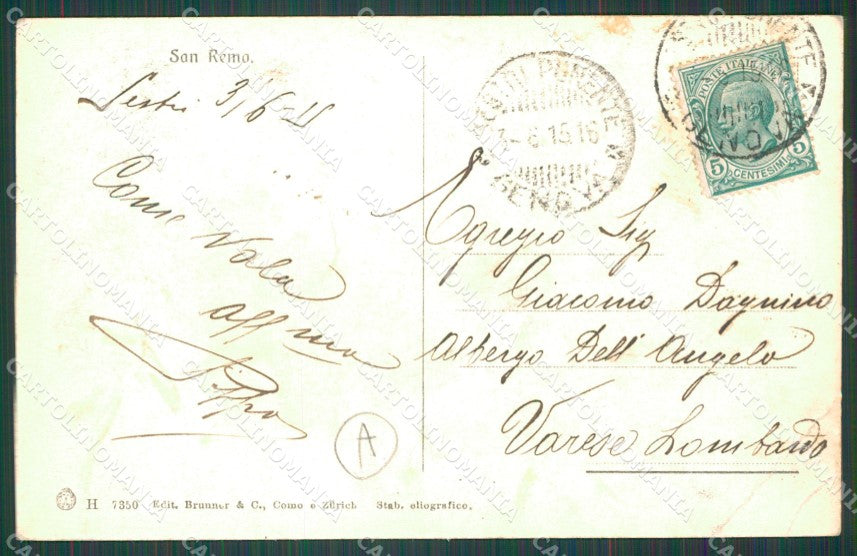 San Remo.
Sestri 3/6-15
Come vala
aff mo
Pippo
A
GENOVA
POSTE ITALIANE
5 5
CENTESIMI
Egregio Sig
Giacomo Dagnino
Albergo Dell' Angelo
Varese Lombardo
H 7350 Edit. Brunner & C., Como e Zürich Stab. eliografico.
CARTOLINOMANIA